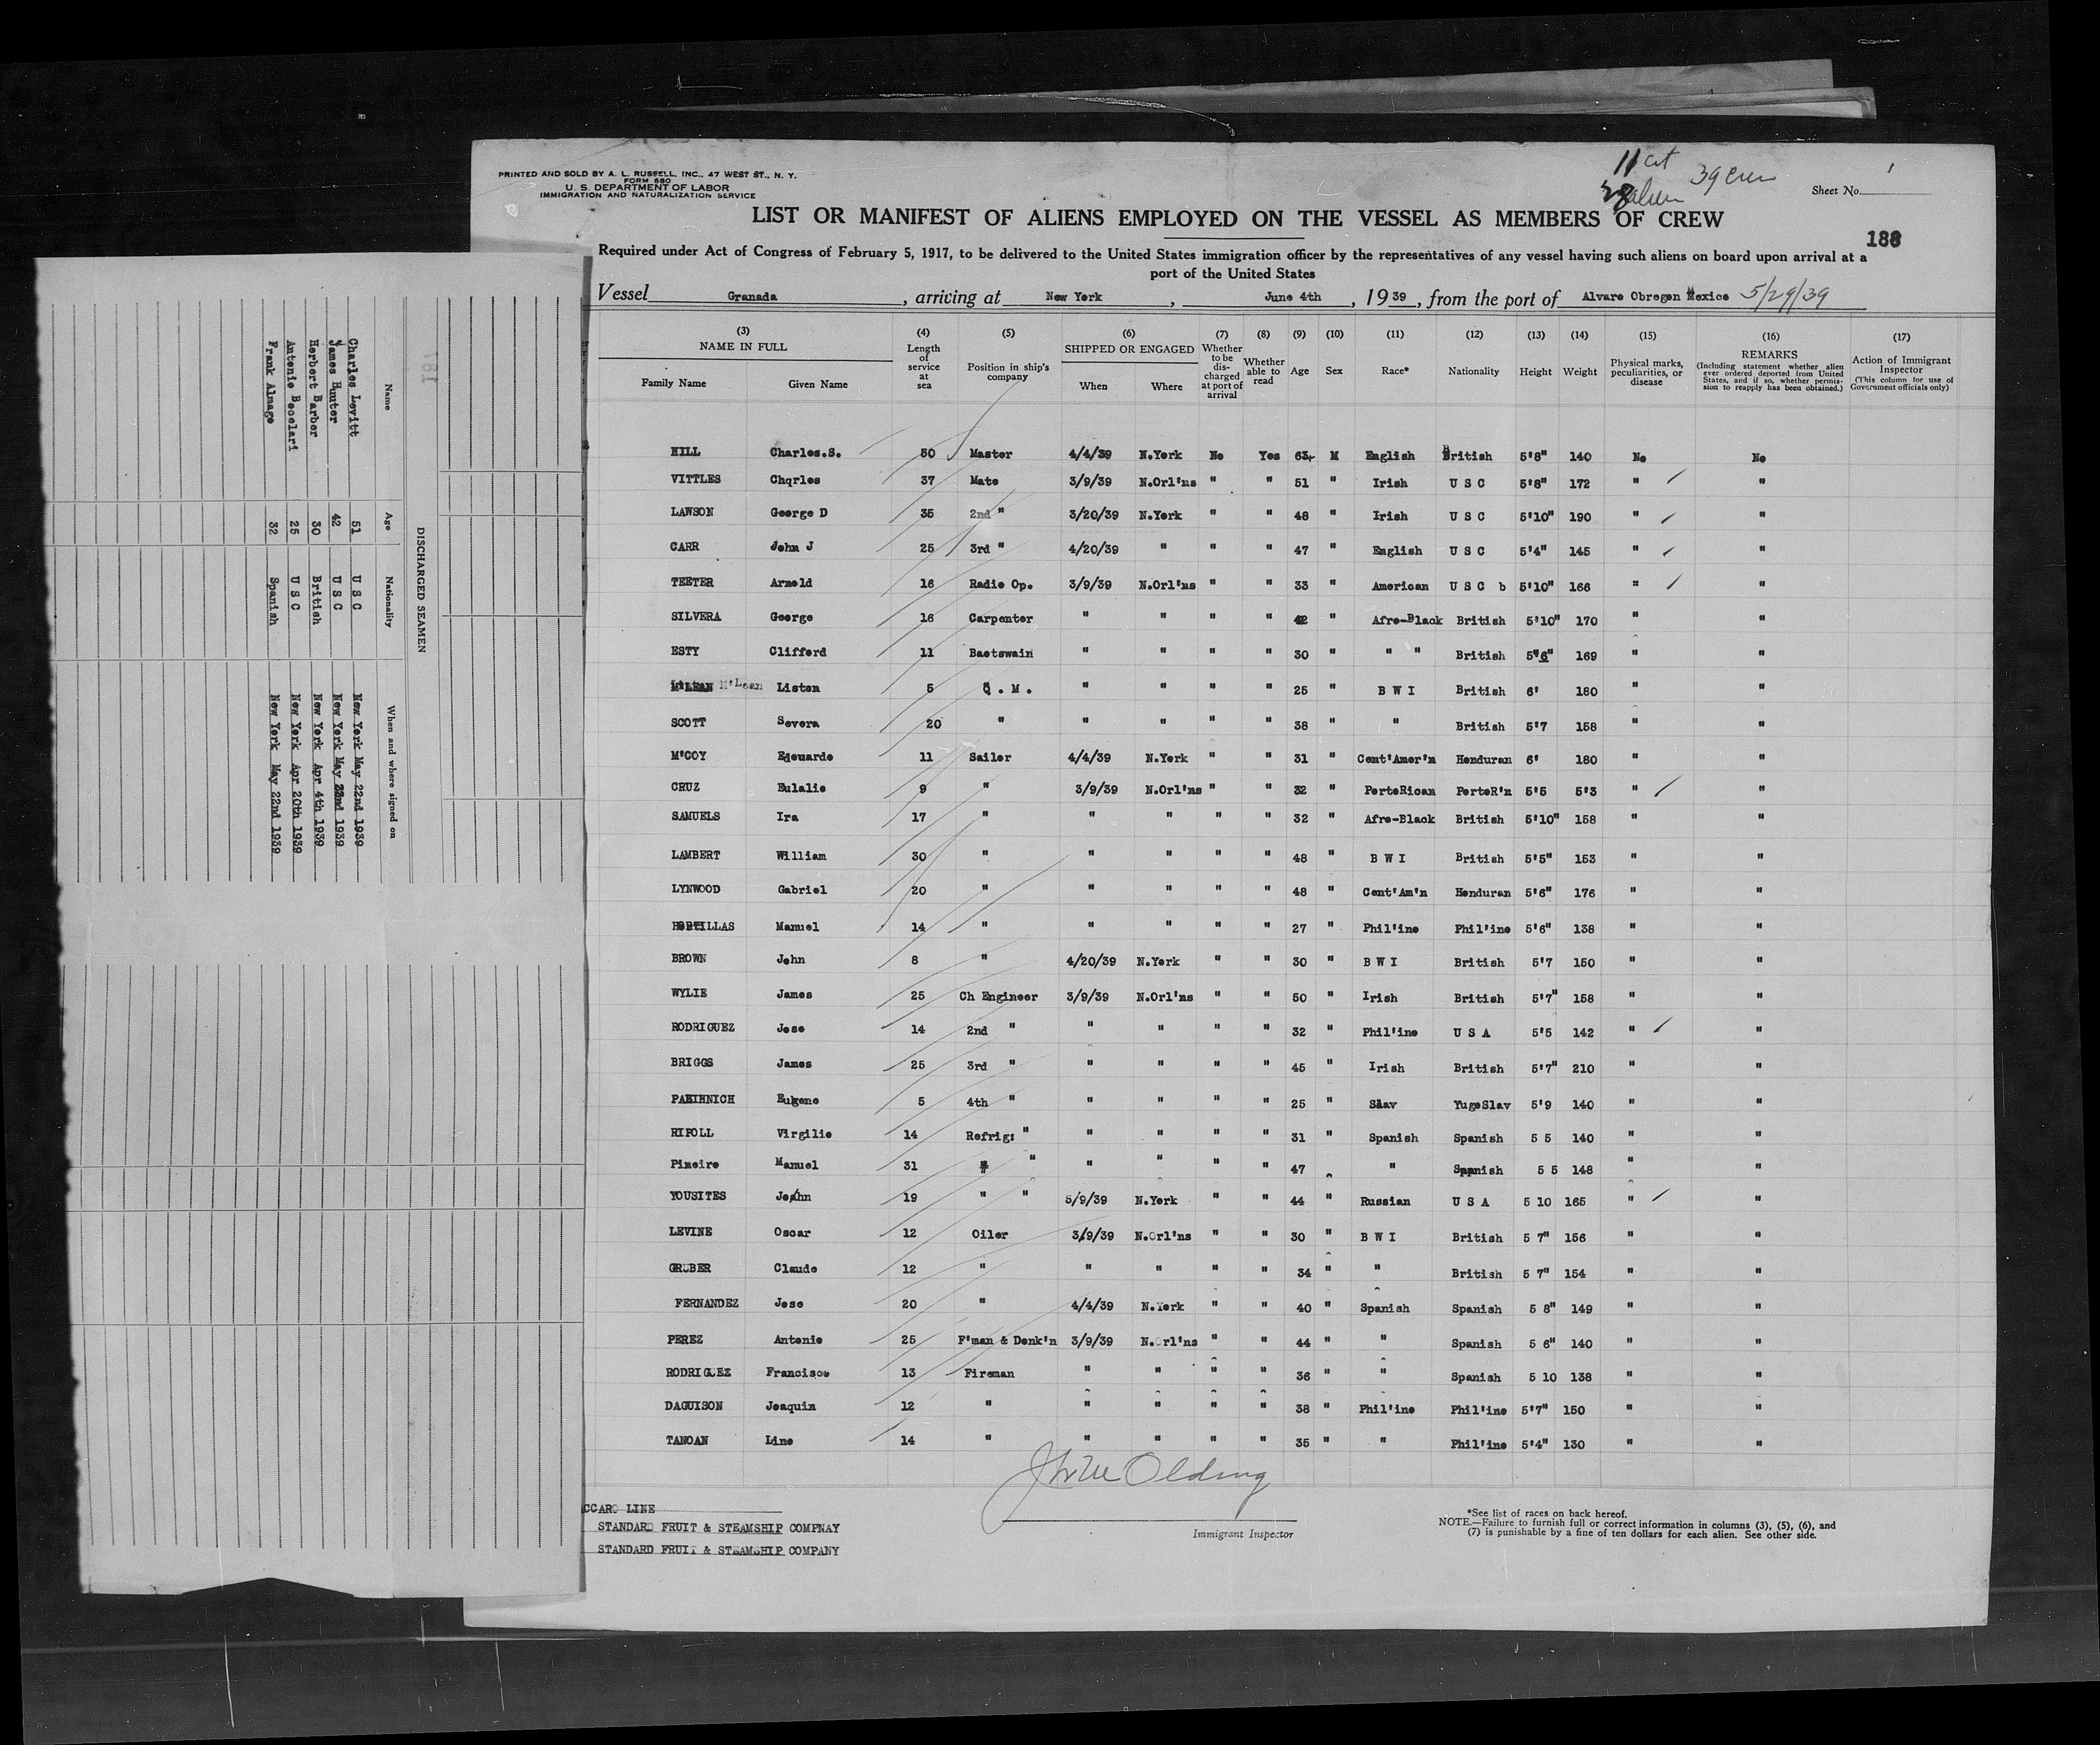 11 cit
39 crew
28 alien
PRINTED AND SOLD BY A. L. RUSSELL, INC., 47 WEST ST., N. Y.
FORM 680
U. S. DEPARTMENT OF LABOR
IMMIGRATION AND NATURALIZATION SERVICE
Sheet No. 1
LIST OR MANIFEST OF ALIENS EMPLOYED ON THE VESSEL AS MEMBERS OF CREW
188
Required under Act of Congress of February 5, 1917, to be delivered to the United States immigration officer by the representatives of any vessel having such aliens on board upon arrival at a
port of the United States
Vessel Granada, arriving at New York, June 4th, 1939, from the port of Alvaro Obregon Mexico 5/29/39
(3) (4) (5) (6) (7) (8) (9) (10) (11) (12) (13) (14) (15) (16) (17)
NAME IN FULL
Family Name Given Name
Length of service at sea
Position in ship's company
SHIPPED OR ENGAGED
When Where
Whether to be discharged at port of arrival
Whether able to read
Age Sex Race* Nationality Height Weight
Physical marks, peculiarities, or disease
REMARKS
(Including statement whether alien ever ordered deported from United States, and if so, whether permission to reapply has been obtained.)
Action of Immigrant Inspector
(This column for use of Government officials only)
HILL Charles.S. 50 Master 4/4/39 N.York No Yes 63 M English British 5'8" 140 No No
VITTLES Chqrles 37 Mate 3/9/39 N.Orl'ns " " 51 " Irish U S C 5'8" 172 " "
LAWSON George D 35 2nd " 3/20/39 N.York " " 48 " Irish U S C 5'10" 190 " "
CARR John J 25 3rd " 4/20/39 " " " 47 " English U S C 5'4" 145 " "
TEETER Arnold 16 Radio Op. 3/9/39 N.Orl'ns " " 33 " American U S C b 5'10" 166 " "
SILVERA George 16 Carpenter " " " " 42 " Afro-Black British 5'10" 170 " "
ESTY Clifford 11 Boatswain " " " " 30 " " " British 5'6" 169 " "
McLean Liston 5 Q.M. " " " " 25 " B W I British 6' 180 " "
SCOTT Severa 20 " " " " " 38 " " British 5'7 158 " "
M'COY Edouardo 11 Sailor 4/4/39 N.York " " 31 " Cent'Amer'n Honduran 6' 180 " "
CRUZ Eulalio 9 " 3/9/39 N.Orl'ns " " 32 " PortoRican PortoR'n 5'5 5'3 " "
SAMUELS Ira 17 " " " " " 32 " Afro-Black British 5'10" 158 " "
LAMBERT William 30 " " " " " 48 " B W I British 5'5" 153 " "
LYNWOOD Gabriel 20 " " " " " 48 " Cent'Am'n Honduran 5'6" 176 " "
Manuel 14 " " " " " 27 " Phil'ine Phil'ine 5'6" 138 " "
BROWN John 8 " 4/20/39 N.York " " 30 " B W I British 5'7 150 " "
WYLIE James 25 Ch Engineer 3/9/39 N.Orl'ns " " 50 " Irish British 5'7" 158 " "
RODRIGUEZ Jose 14 2nd " " " " " 32 " Phil'ine U S A 5'5 142 " "
BRIGGS James 25 3rd " " " " " 45 " Irish British 5'7" 210 " "
Eugene 5 4th " " " " " 25 " Slav YugoSlav 5'9 140 " "
RIPOLL Virgilio 14 Refrig: " " " " " 31 " Spanish Spanish 5 5 140 " "
Pineiro Manuel 31 " " " " " 47 " " Spanish 5 5 148 " "
YOUSITES John 19 " " 5/9/39 N.York " " 44 " Russian U S A 5 10 165 " "
LEVINE Oscar 12 Oiler 3/9/39 N.Orl'ns " " 30 " B W I British 5 7" 156 " "
GRUBER Claude 12 " " " " " 34 " " British 5 7" 154 " "
FERNANDEZ Jose 20 " 4/4/39 N.York " " 40 " Spanish Spanish 5 8" 149 " "
PEREZ Antonio 25 F'man & Donk'n 3/9/39 N.Orl'ns " " 44 " " Spanish 5 6" 140 " "
RODRIGUEZ Francisco 13 Fireman " " " " 36 " " Spanish 5 10 138 " "
DAGUISON Joaquin 12 " " " " " 38 " Phil'ine Phil'ine 5'7" 150 " "
TANOAN Lino 14 " " " " " 35 " " Phil'ine 5'4" 130 " "
Olding
Immigrant Inspector
CCARO LINE
STANDARD FRUIT & STEAMSHIP COMPNAY
STANDARD FRUIT & STEAMSHIP COMPANY
*See list of races on back hereof.
NOTE.—Failure to furnish full or correct information in columns (3), (5), (6), and
(7) is punishable by a fine of ten dollars for each alien. See other side.
DISCHARGED SEAMEN
Name Age Nationality When and where signed on
Charles Levitt 51 U S C New York May 22nd 1939
James Hunter 42 U S C New York May 22nd 1939
Herbert Barber 30 British New York Apr 4th 1939
Antonio Bocelari 25 U S C New York Apr 20th 1939
Frank Almage 32 Spanish New York May 22nd 1939
187